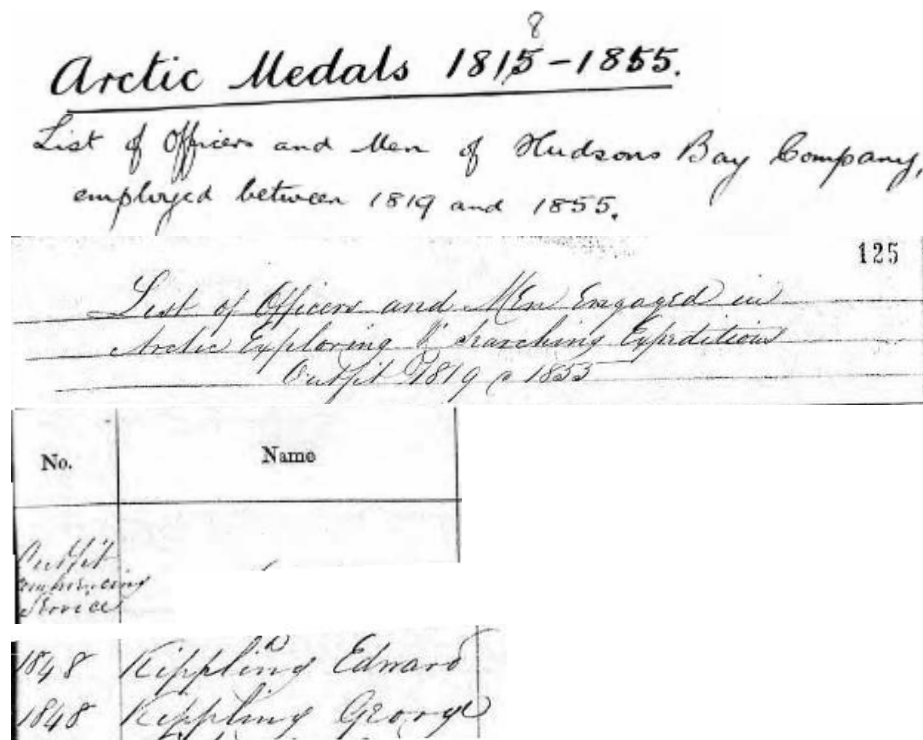 8
Arctic Medals 1815-1855.
List of Officers and Men of Hudsons Bay Company,
employed between 1819 and 1855.
125
List of Officers and Men Engaged in
Arctic Exploring & Searching Expeditions
Outfit 1819 @ 1855
No. Name
Outfit
Commencing
Service
1848 Kippling Edward
1848 Kippling George